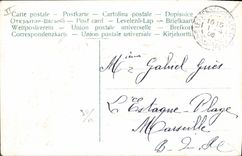 Carte postale — Postkarte — Cartolina postale — Dopisnice
Открытое письмо — Post card — Levelező-Lap — Briefkaart
Weltpostverein — Union postale universelle — Brefkort
Correspondenzkarte — Union postale universelle — Kirjekortti
Mme Gabriel
L'Estaque-Plage
Marseille
B. D. R.